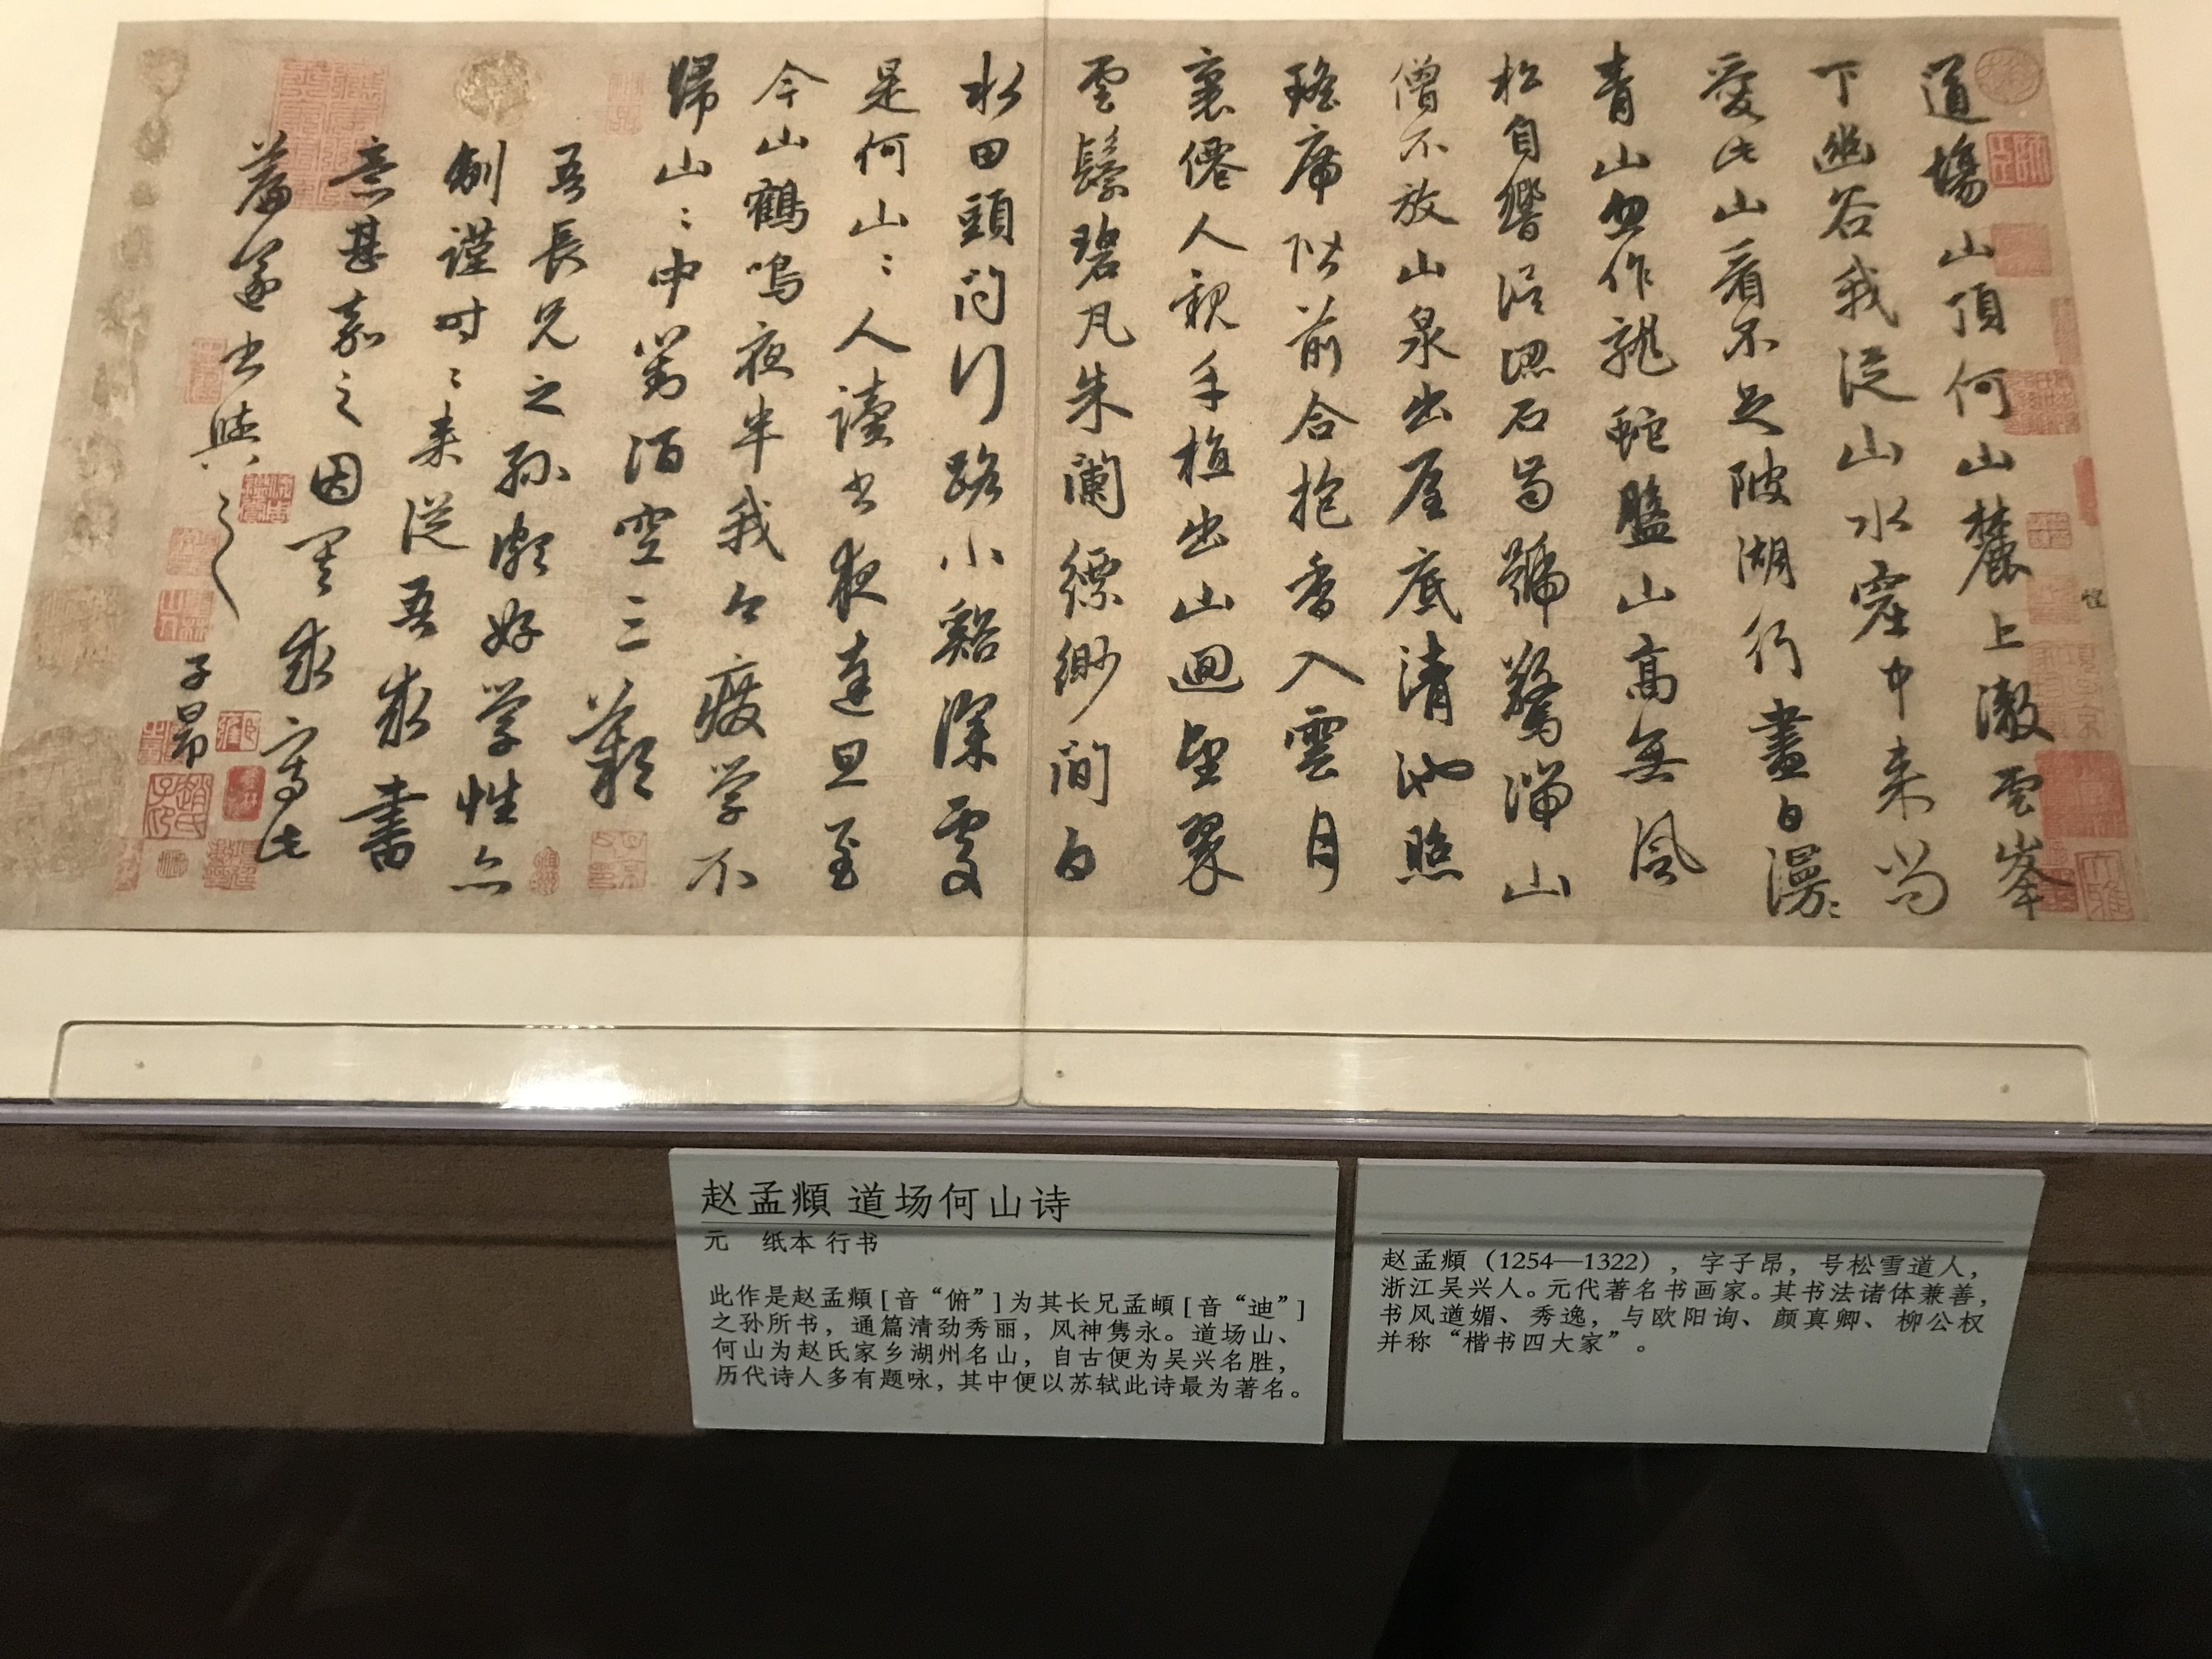 道場山頂何山麓上澈雲峯
下幽谷我從山水窟中来尚
愛此山看不足陂湖行盡白漫〻
青山忽作龍蛇盤山高無風
松自響誤認石齒號驚湍山
僧不放山泉出屋底清池照
瑤席階前合抱香入雲月
裏僊人親手植出山迴望翠
雲鬟碧瓦朱闌縹緲間白
水田頭问行路小谿深處
是何山〻人讀书夜達旦至
今山鶴鳴夜半我今廢学不
歸山〻中對酒空三歎
吾長兄之孫頗好学性亦
制謹时〻来從吾求書
意甚嘉之因其求寫此
篇遂书與之
子昂
大雅
趙氏子昂
赵孟頫 道场何山诗
元 纸本 行书
此作是赵孟頫[音“俯”]为其长兄孟頔[音“迪”]
之孙所书，通篇清劲秀丽，风神隽永。道场山、
何山为赵氏家乡湖州名山，自古便为吴兴名胜，
历代诗人多有题咏，其中便以苏轼此诗最为著名。
赵孟頫（1254—1322），字子昂，号松雪道人，
浙江吴兴人。元代著名书画家。其书法诸体兼善，
书风遒媚、秀逸，与欧阳询、颜真卿、柳公权
并称“楷书四大家”。